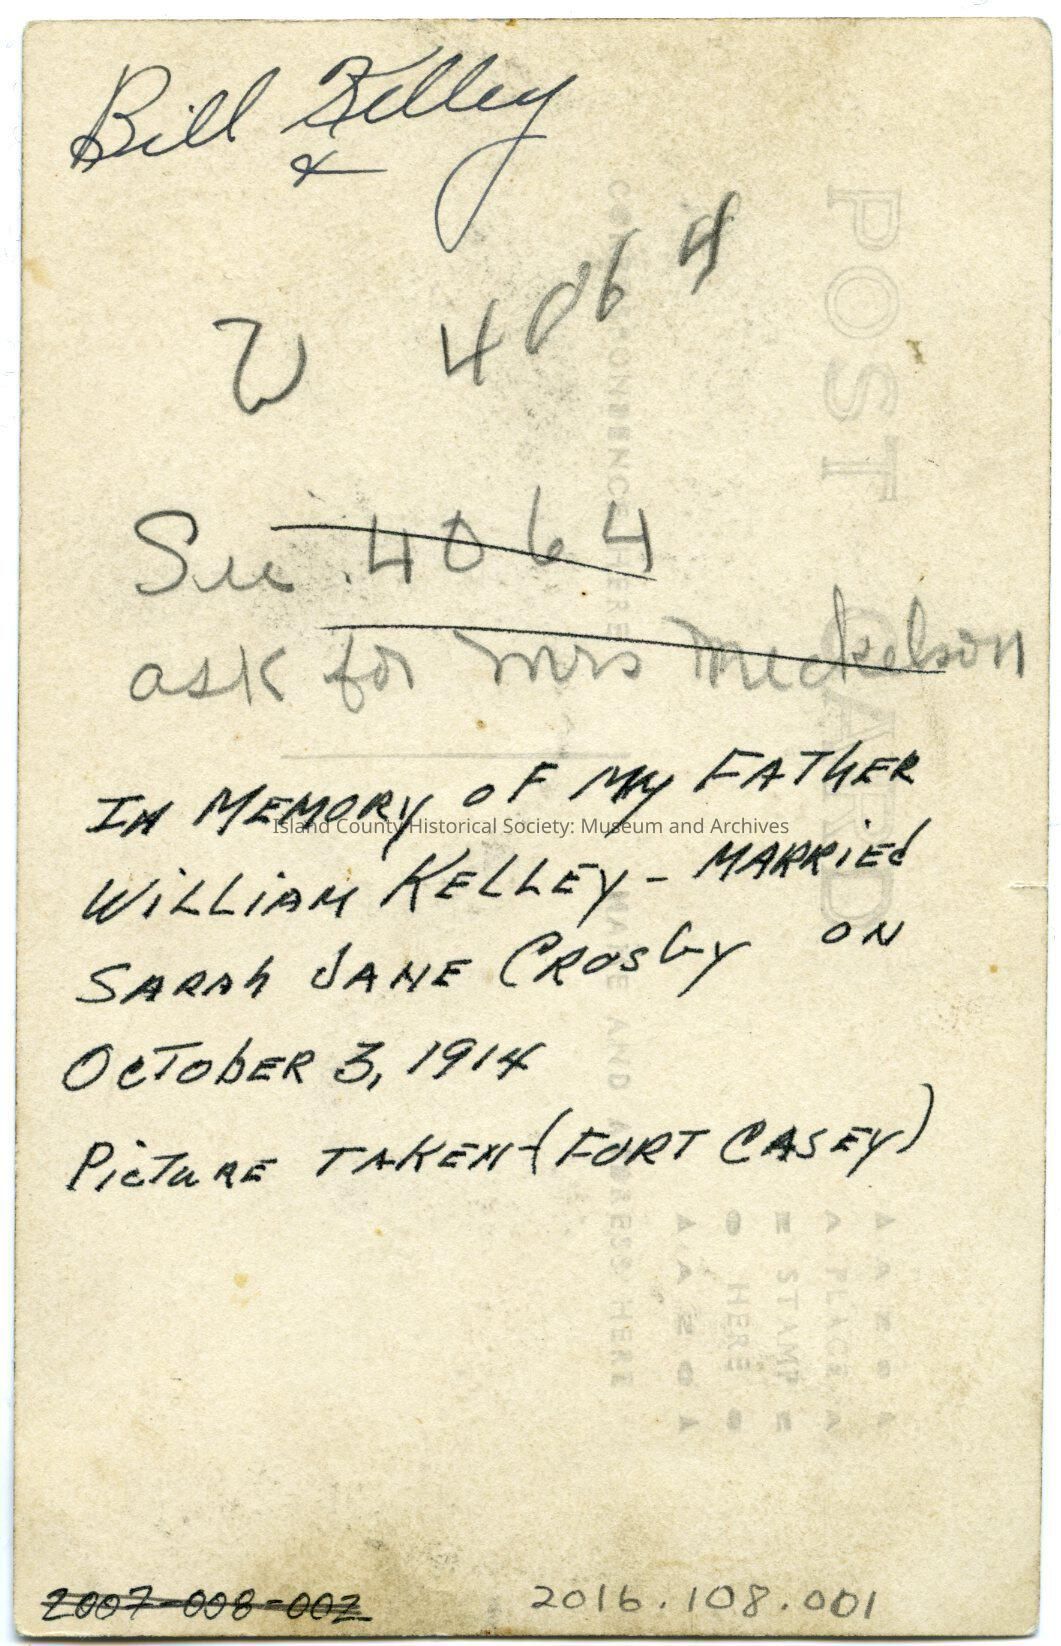 Bill Kelley
&
W 4064
See 4064
ask for Mrs Meckelson
IN MEMORY OF MY FATHER
Island County Historical Society: Museum and Archives
WILLIAM KELLEY - MARRIED
SARAH JANE CROSBY ON
OCTOBER 3, 1914
PICTURE TAKEN - (FORT CASEY)
2007-008-002
2016.108.001
POST CARD
CORRESPONDENCE HERE
NAME AND ADDRESS HERE
PLACE
STAMP
HERE